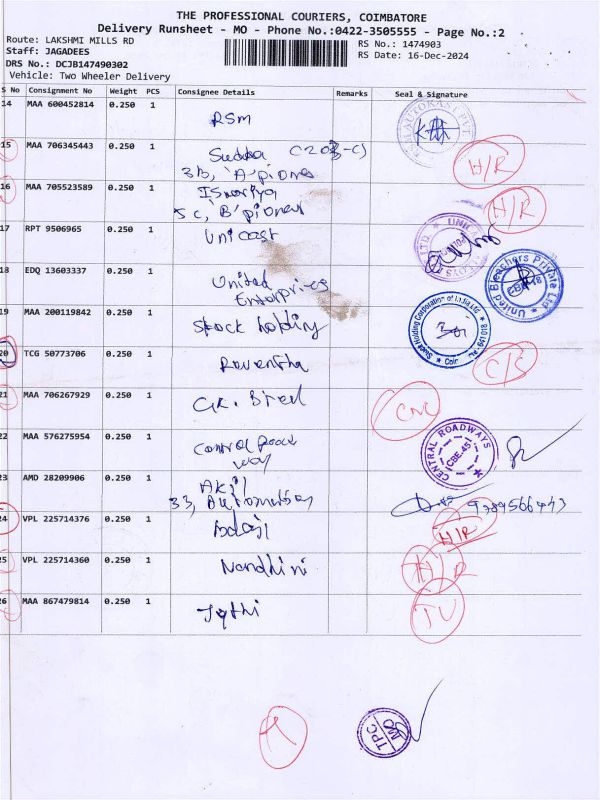 THE PROFESSIONAL COURIERS, COIMBATORE
Delivery Runsheet - MO - Phone No.:0422-3505555 - Page No.:2
Route: LAKSHMI MILLS RD
RS No.: 1474903
Staff: JAGADEES
RS Date: 16-Dec-2024
DRS No.: DCJB147490302
Vehicle: Two Wheeler Delivery
S No Consignment No Weight PCS Consignee Details Remarks Seal & Signature
14 MAA 600452814 0.250 1 RSM
15 MAA 706345443 0.250 1 Sudha H/R
3b, 'A' pioneer
16 MAA 705523589 0.250 1 Iswariya H/R
5c, 'B' pioneer
17 RPT 9506965 0.250 1 Unicast
18 EDQ 13603337 0.250 1 United Enterprises United Bleachers Private Ltd CBE-18
19 MAA 200119842 0.250 1 Stock holding Stock Holding Corporation of India Ltd
20 TCG 50773706 0.250 1
21 MAA 706267929 0.250 1 G.K. Steel CNC
22 MAA 576275954 0.250 1 Central Road way CENTRAL ROADWAYS CBE-45
23 AMD 28209906 0.250 1 Akil
33,
24 VPL 225714376 0.250 1 Balaji H/R
25 VPL 225714360 0.250 1 Nandhini H/R
26 MAA 867479814 0.250 1 Jothi
TPC MO